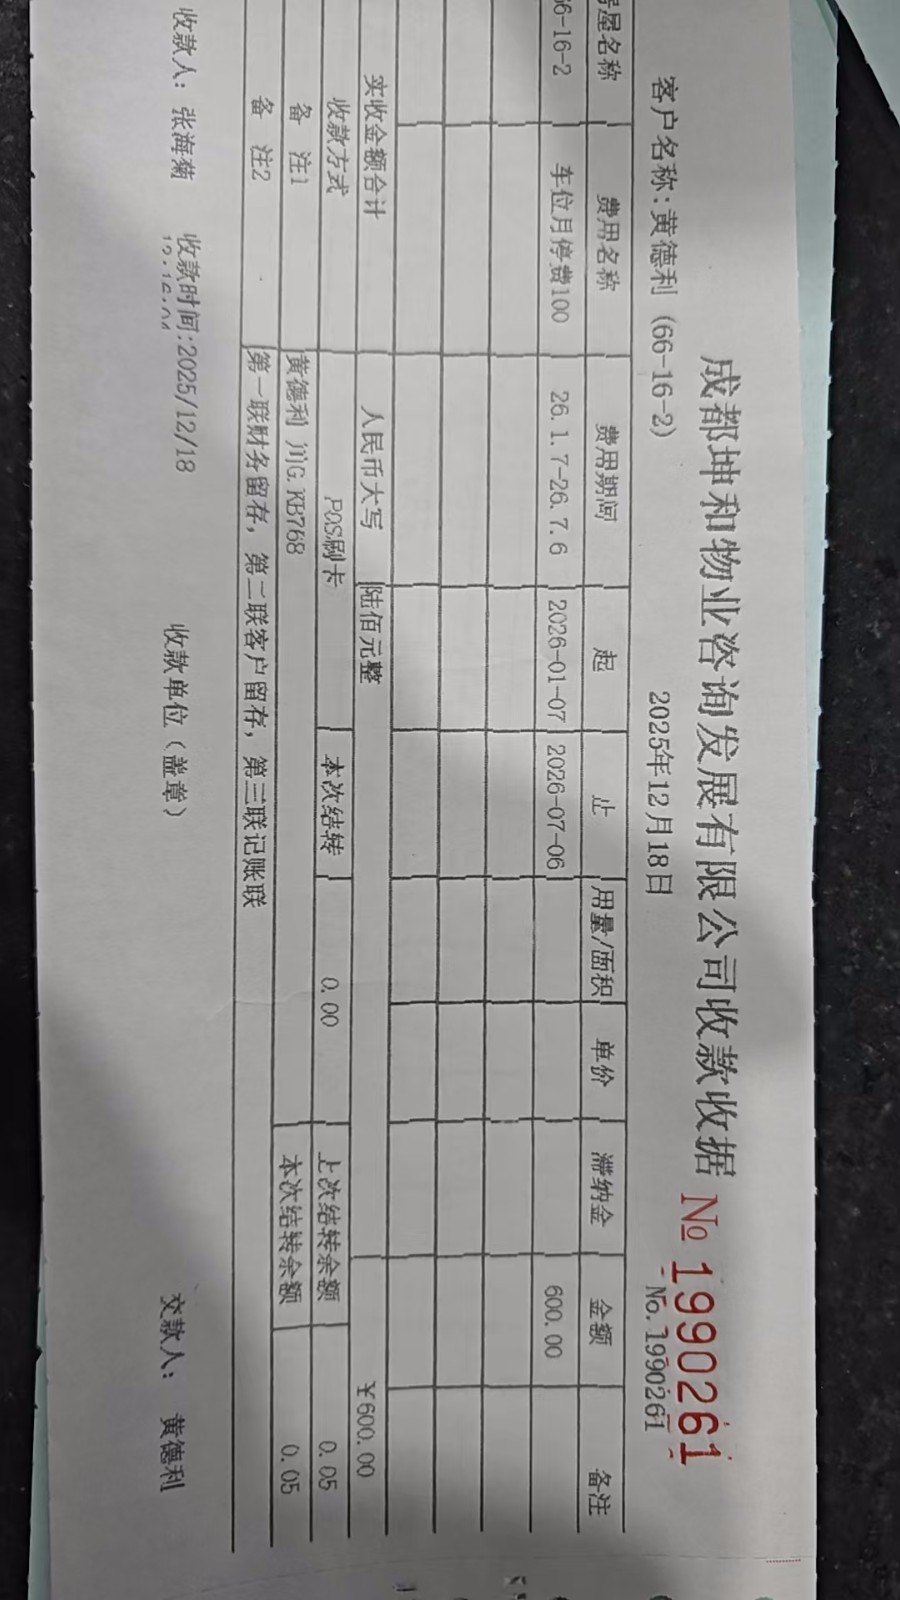 成都坤和物业咨询发展有限公司收款收据 № 1990261
客户名称:黄德利 (66-16-2) 2025年12月18日 No.1990261
房屋名称 费用名称 费用期间 起 止 用量/面积 单价 滞纳金 金额 备注
66-16-2 车位月停费100 26.1.7-26.7.6 2026-01-07 2026-07-06 600.00
实收金额合计 人民币大写 陆佰元整 ¥600.00
收款方式 POS刷卡 本次结转 0.00 上次结转余额 0.05
备 注1 黄德利 川G.KB768 本次结转余额 0.05
备 注2 第一联财务留存，第二联客户留存，第三联记账联
收款人: 张海菊 收款时间:2025/12/18 收款单位(盖章) 交款人: 黄德利